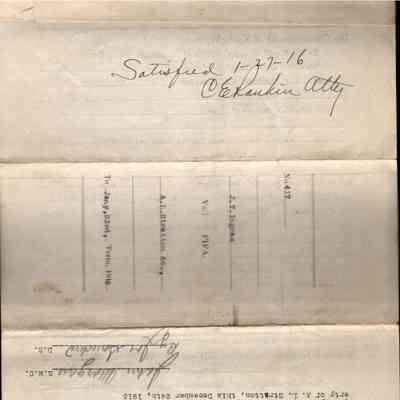 Satisfied 1-27-16
C E Rankin Atty
No 417
J.T. Ingram
Vs: FIFA.
A.I. Stratton &c.,
To Jany, 22nd, Term. 1916
erty of A. I. Stratton, this December 24th, 1915
S.M.C.
D.S.